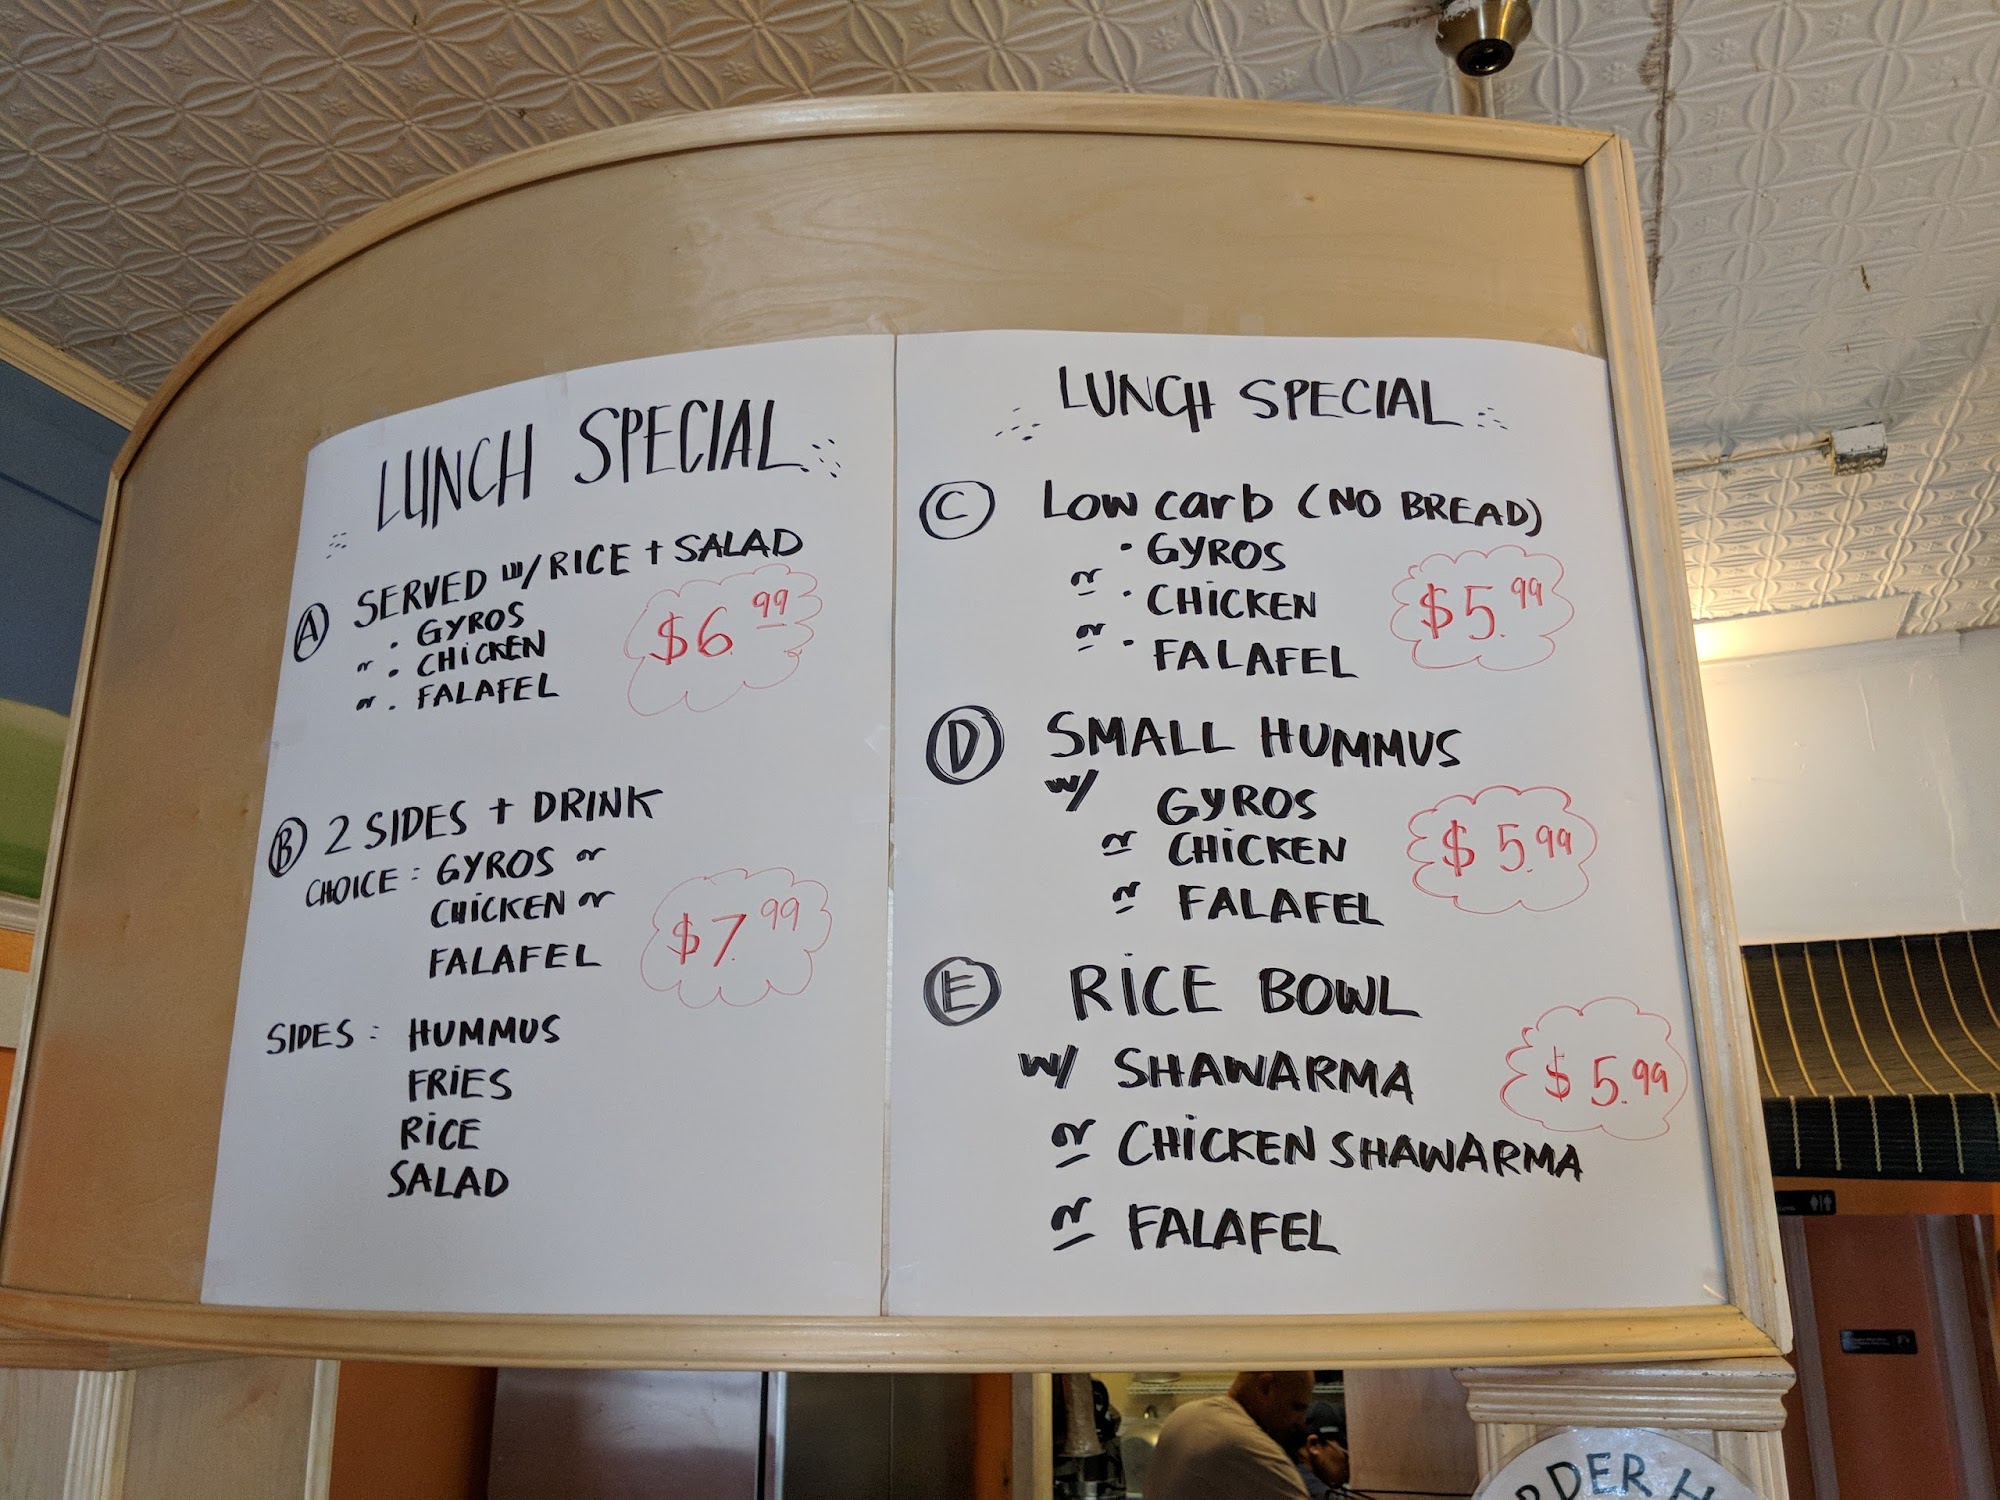 LUNCH SPECIAL
Ⓐ SERVED W/ RICE + SALAD
· GYROS
or · CHICKEN
or · FALAFEL
$6.99
Ⓑ 2 SIDES + DRINK
CHOICE: GYROS or
CHICKEN or
FALAFEL
$7.99
SIDES: HUMMUS
FRIES
RICE
SALAD
LUNCH SPECIAL
Ⓒ Low carb (NO BREAD)
· GYROS
or · CHICKEN
or · FALAFEL
$5.99
Ⓓ SMALL HUMMUS
w/ GYROS
or CHICKEN
or FALAFEL
$5.99
Ⓔ RICE BOWL
w/ SHAWARMA
or CHICKEN SHAWARMA
or FALAFEL
$5.99